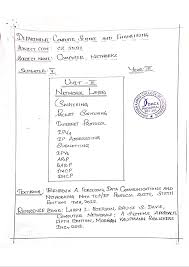 DEPARTMENT: COMPUTER SCIENCE AND ENGINEERING
SUBJECT CODE: CS 3591
SUBJECT NAME: COMPUTER NETWORKS
SEMESTER: V YEAR: III
UNIT - III
NETWORK LAYER
SWITCHING
PACKET SWITCHING
INTERNET PROTOCOL
IPV4
IP ADDRESSING
SUBNETTING
IPV6
ARP
RARP
ICMP
DHCP
TEXTBOOK: BEHROUZ A. FOROUZAN, DATA COMMUNICATIONS AND
NETWORKING WITH TCP/IP PROTOCOL SUITE, SIXTH
EDITION TMH, 2022.
REFERENCE BOOK: LARRY L. PETERSON, BRUCE S. DAVIE,
COMPUTER NETWORKS: A SYSTEMS APPROACH,
FIFTH EDITION, MORGAN KAUFMANN PUBLISHERS
INC., 2012.